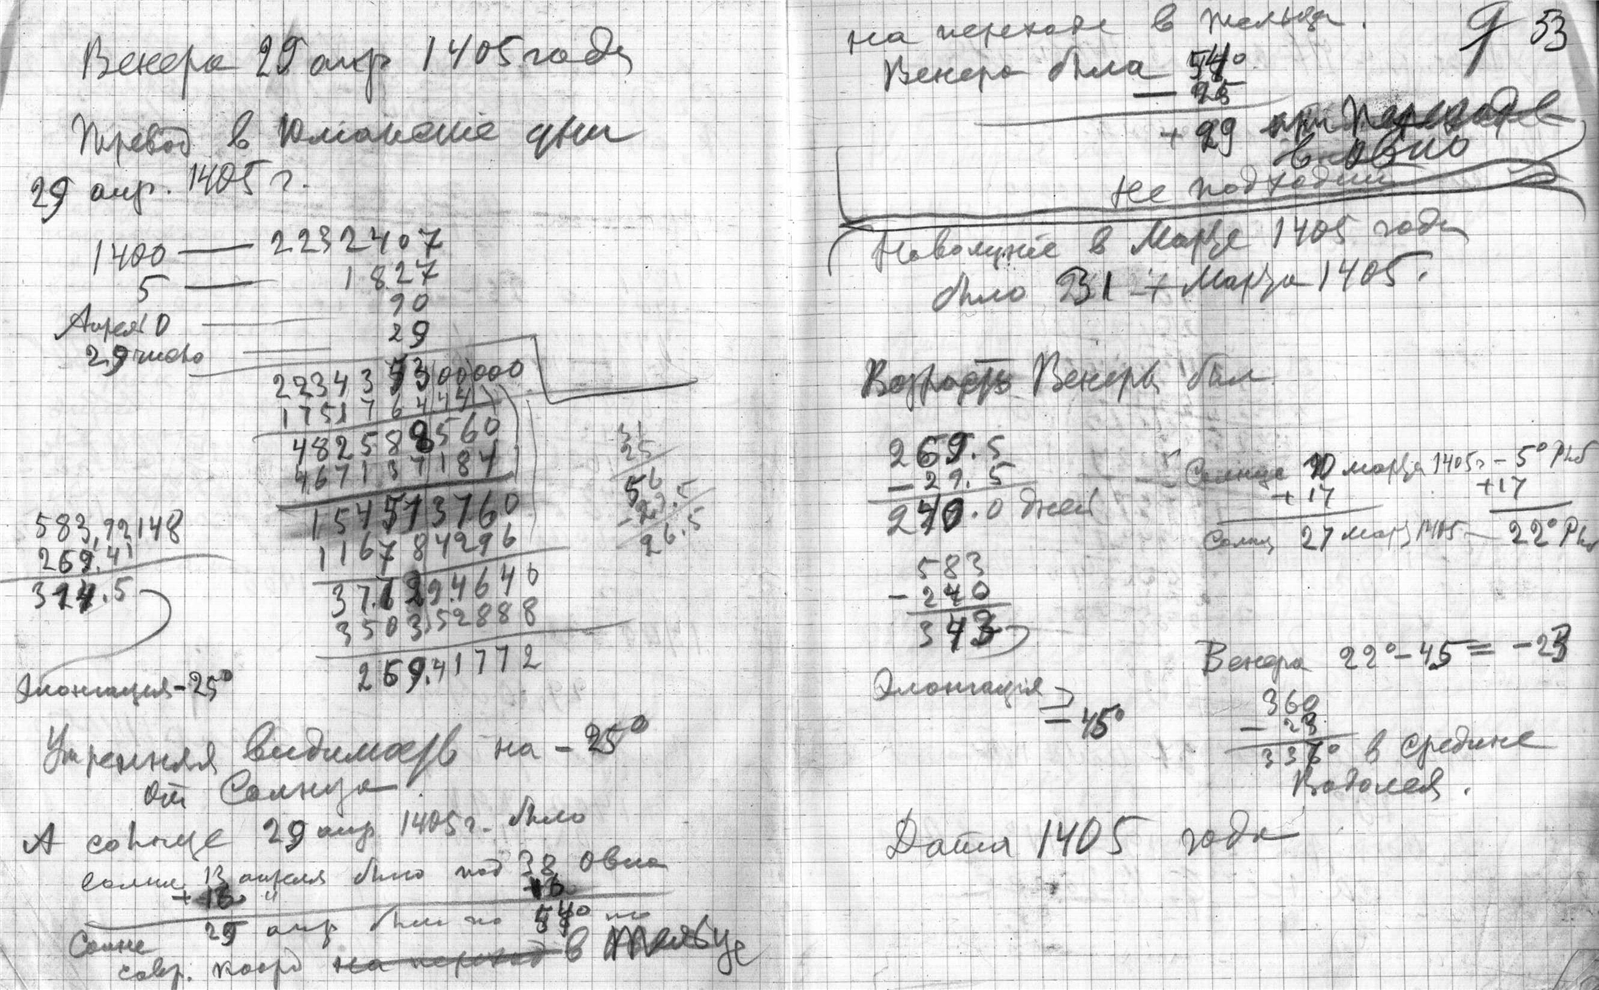 Венера 29 апр 1405 года
Перевод в Юлианские дни
29 апр. 1405 г.
1400 — 2232407
5 — 1827
Апреля 0 — 90
29 число — 29
2234353 00000
175176444
482588560
467137184
154513760
116784296
377294640
350352888
269.41772
583,92148
269.41
314.5
Элонгация -25°
31
25
56
-29.5
26.5
Утренняя видимость на -25°
от Солнца
А солнце 29 апр 1405 г. было
Солнц 13 апреля было под 38 Овна
+ 16 "
Солнце 29 апр был по 54° по
совр. коорд на переход в Тельце
на переходе в Тельца.
Венера была 54°
- 25
+ 29 при переходе
в Овно
не подходит
53
Новолуние в Марте 1405 года
было 31 Марта 1405.
Возраст Венеры был
269.5
- 29.5
240.0 дней
583
- 240
343
Элонгация
= 45°
Солнце 10 марта 1405 г - 5° Рыб
+ 17 +17
Солнц 27 март 1405 — 22° Рыб
Венера 22° - 45 = -23
360
- 23
337° в средине
Водолея.
Дата 1405 года